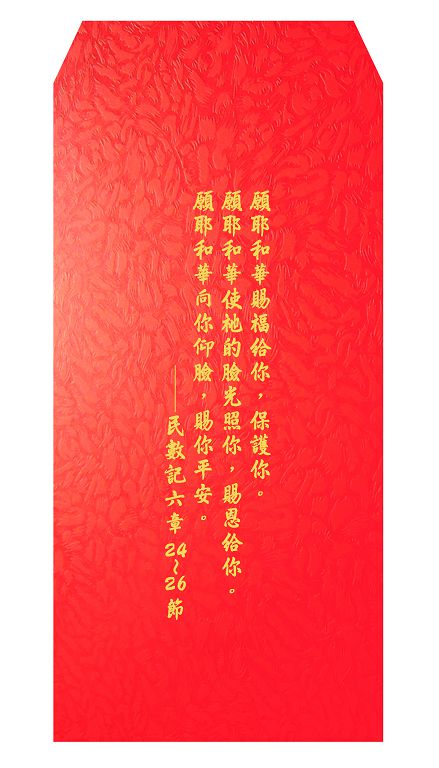 願耶和華賜福給你，保護你。
願耶和華使祂的臉光照你，賜恩給你。
願耶和華向你仰臉，賜你平安。
——民數記六章24~26節